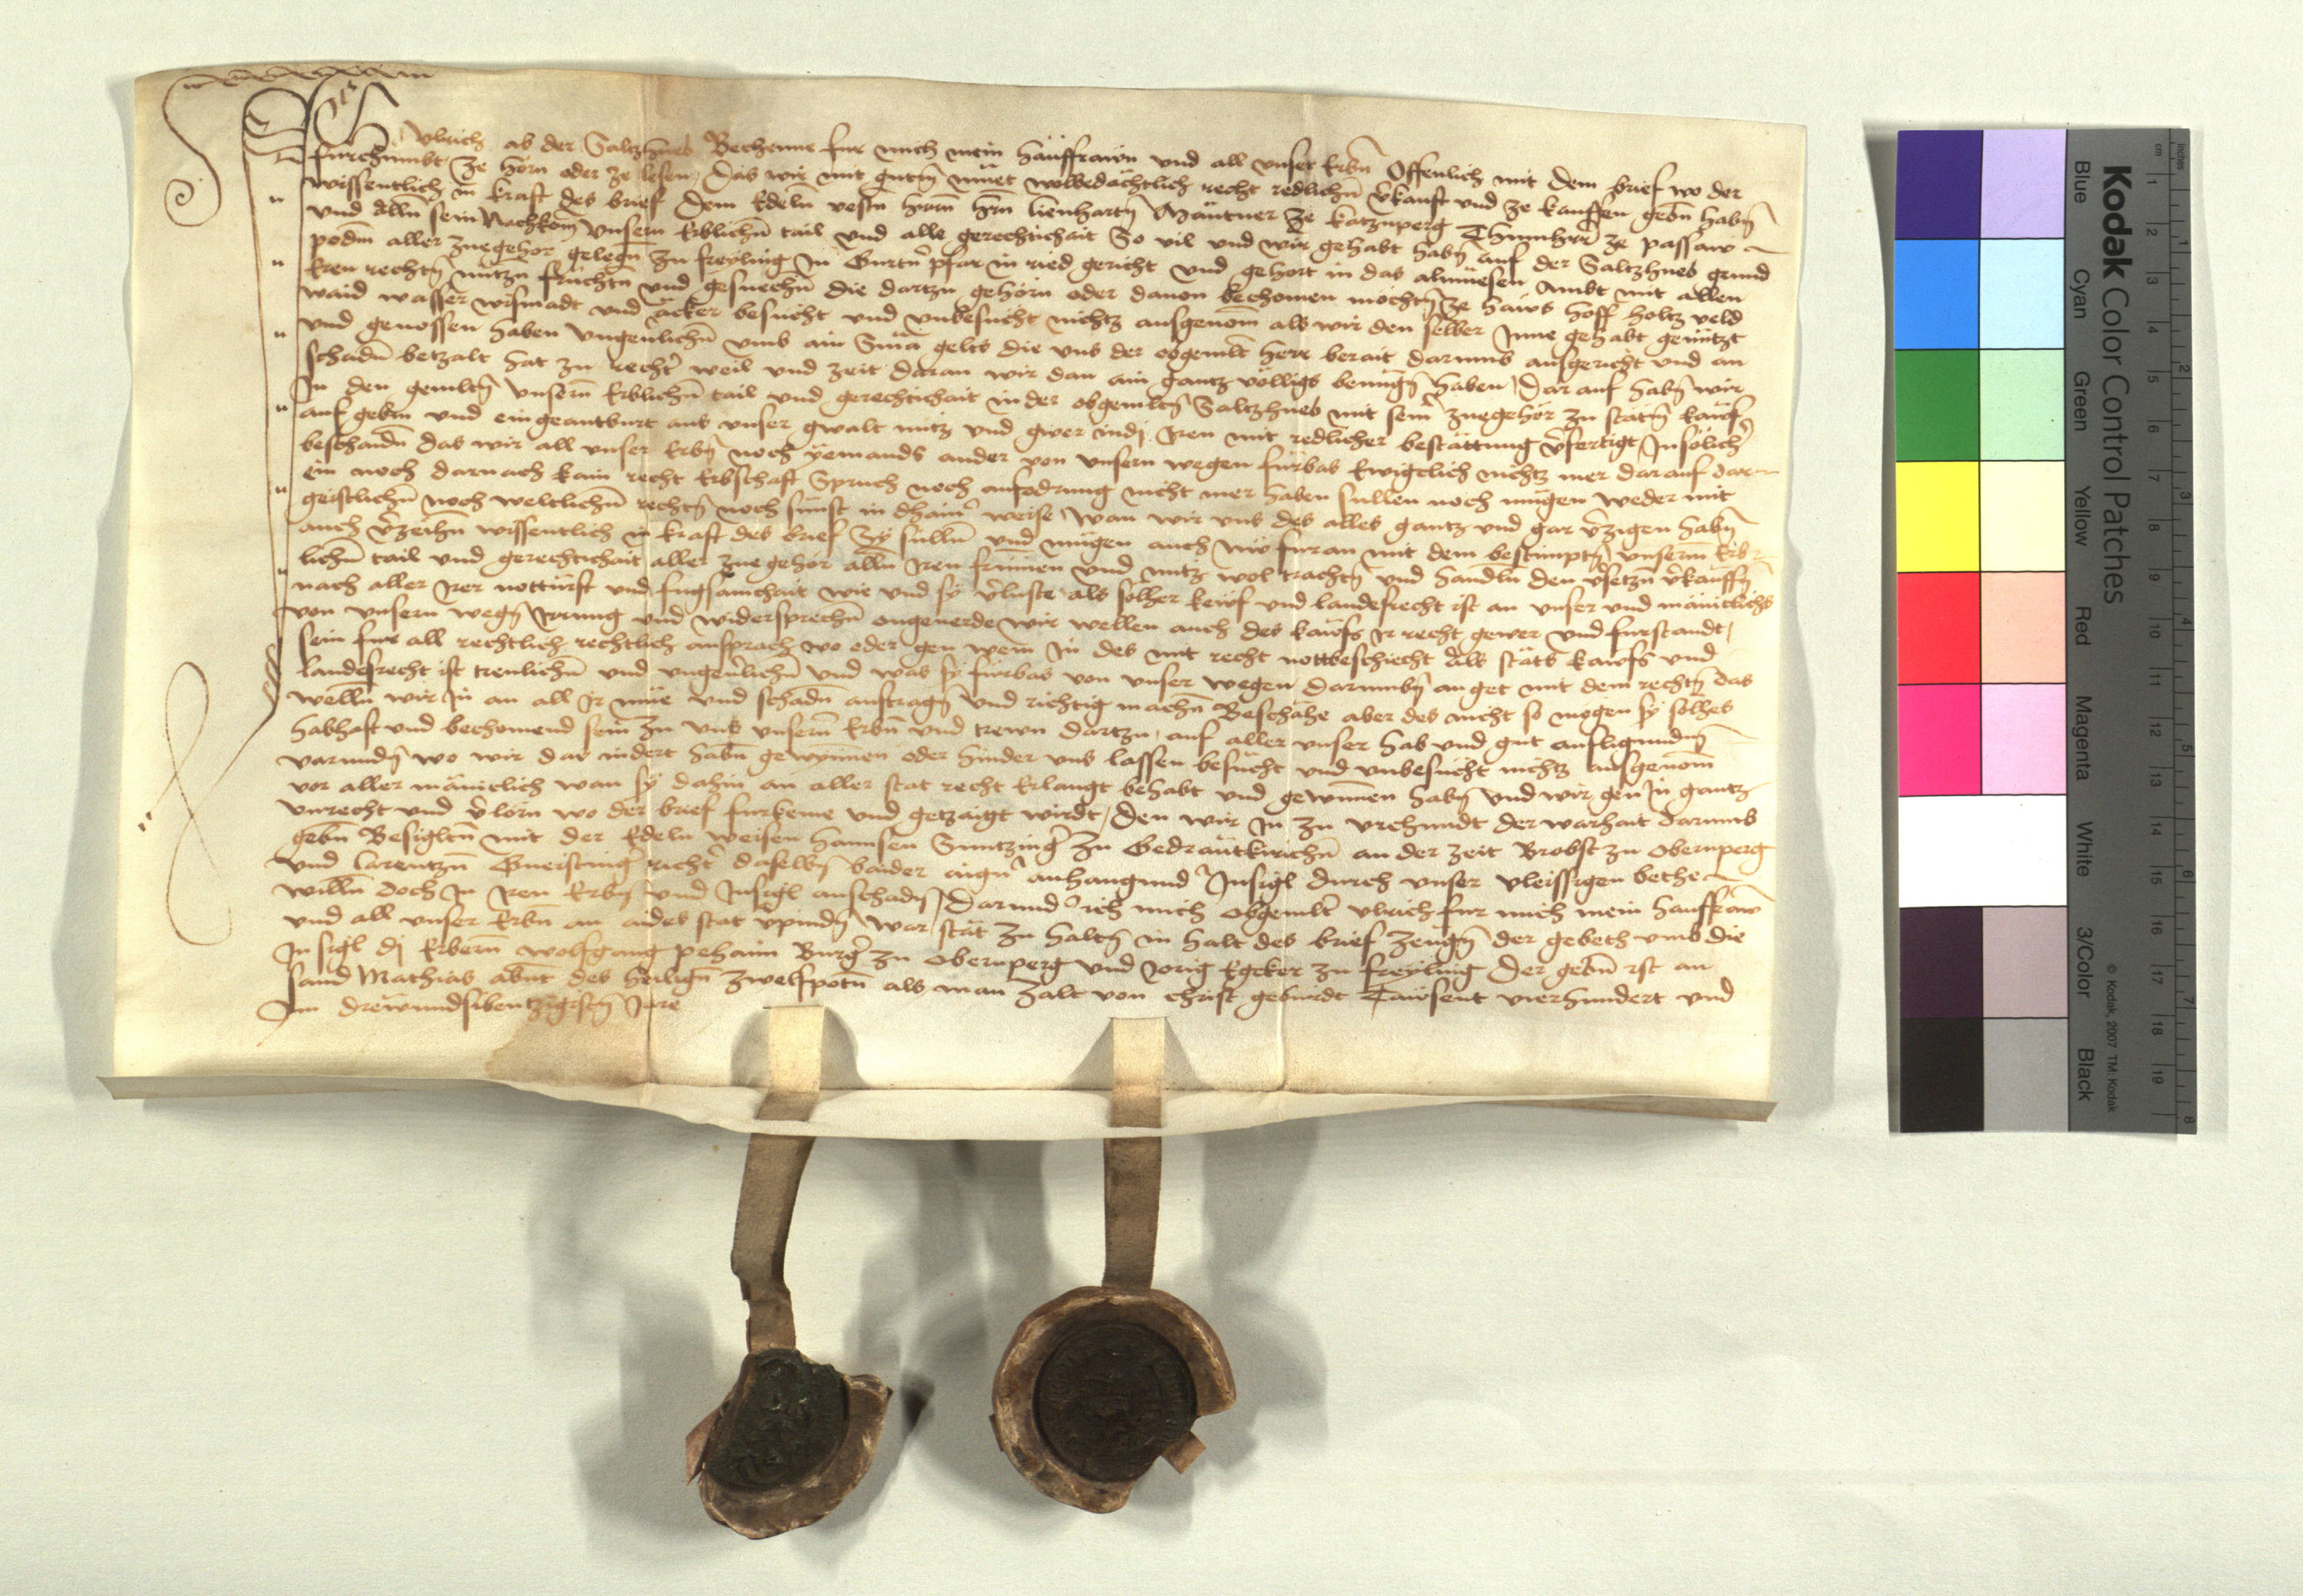 Ich Ulrich ab der Saltzhueb Bechenne fur mich mein hauffrawn und all unser Erbn Offenlich mit dem brief wo der
furchumbt ze horn oder ze lesen das wir mit gutem muet wolbedachtlich recht redlichn vkauft und ze kauffen gebn habn
wissentlich in kraft des brief dem Edeln vestn herrn hern lienhartn Mäutner ze katznperg Thumherr ze passaw
und alln sein Nachkom unsern Erblichn tail und alle gerechtichait So vil und wir gehabt habn auf der Saltzhueb grund
podm aller zuegehor gelegn zu freyling in Gurtn pfar in ried gericht und gehort in das almuesen Ambt mit allen
Eren rechtn nutzn früchtn und gesuechn die dartzu gehorn oder dauon bechomen möchtn ze haws hoff holtz veld
waid wasser wismadt und äcker besucht und unbesucht nichtz ausgenom als wir den selber Inne gehabt genützt
und genossen haben ungeuerlichn umb ain Suma gelts die uns der obgemlt herr berait darumb ausgericht und an
schadn betzalt hat zu rechter weil und zeit daran wir dan ain gantz völligs benügn haben Dar auf habn wir
In den gemltn unsern Erblichn tail und gerechtichait in der obgemltn Saltzhueb mit seiner zuegehör zu statn kaufs
auf gebn und eingeantburt aus unser gwalt nutz und gwer indj Iren mit redlicher bestättung vfertigt In sölich
beschaidn das wir all unser Erbn noch yemands ander von unsern wegen fürbas Ewigclich nichtz mer darauf dar
ein noch darnach kain recht Erbschaft Spruch noch anfodrung nicht mer haben sullen noch mügen weder mit
geistlichn noch weltlichn rechtn noch sünst in dhainer weise Wan wir uns des alles gantz und gar vzigen habn
auch vzeihn wissentlich in kraft des brief Sy sulln und mügen auch nw furan mit dem bestimptn unserm Erb
lichn tail und gerechtichait aller zuegehör alln Iren frumen und nutz wol trachtn und handln den vsetzn vkauffn
nach aller Irer notturft und fuegsamchait wie und sy vluste als solher kewf und landesrecht ist an unser und mänicklichs
von unsern wegn Irrung und widersprechn ongeuerde wir wellen auch des kaufs Ir recht gewer und furstandt
sein fur all rechtlich rechtlich ansprach wo oder gen wem In des mit recht nottbeschiecht Als stäts kawfs und
landesrecht ist trewlichn und ungeuerlichn und was sy fürbas von unser wegen darumbn anget mit dem rechtn das
welln wir In an all Ir müe und schadn austragn und richtig machn Beschähe aber des nicht so mogen sy solhes
habhaft und bechomend sein zu uns unsern Erbn und trewn dartzu auf aller unser hab und gut aufligundn
varundn wo wir dar indert habn gewynnen oder hinder uns lassen besucht und unbesucht nichtz ausgenom
vor aller mänicklich wan sy dahin an aller stat recht Erlangt behabt und gewunnen habn und wir gen In gantz
unrecht und vlorn wo der brief furkeme und getzaigt wirdt Den wir In zu urchundt der warhait darumb
gebn Besigltn mit der Edeln weisen hannsen Suntzinger zu Gedrautkirchn an der zeit Brobst zu Obernperg
und larentzn Gneistinger richter daselbn baider aign anhangund Insigl durch unser vleissigen bethe
willn doch In Iren Erbn und Insigl anschadn Darund ich mich obgemlter Ulrich fur mich mein hauffraw
und all unser Erbn an aides stat vpindn war stät zu haltn in halt des brief zeugn der gebeth umb die
Insigl dj Erbern wolfgang pehaim Burger zu Obernperg und Jorig Egker zu freyling Der gebn ist an
sand Mathias abnt des heilign zwelfpotn als man zalt von christ geburdt Tawsent vierhundert und
Im drewundsibentzigistn Jare
Kodak Color Control Patches
Blue Cyan Green Yellow Red Magenta White 3/Color Black
© Kodak, 2007 TM: Kodak
cm 1 2 3 4 5 6 7 8 9 10 11 12 13 14 15 16 17 18 19
inches 1 2 3 4 5 6 7 8